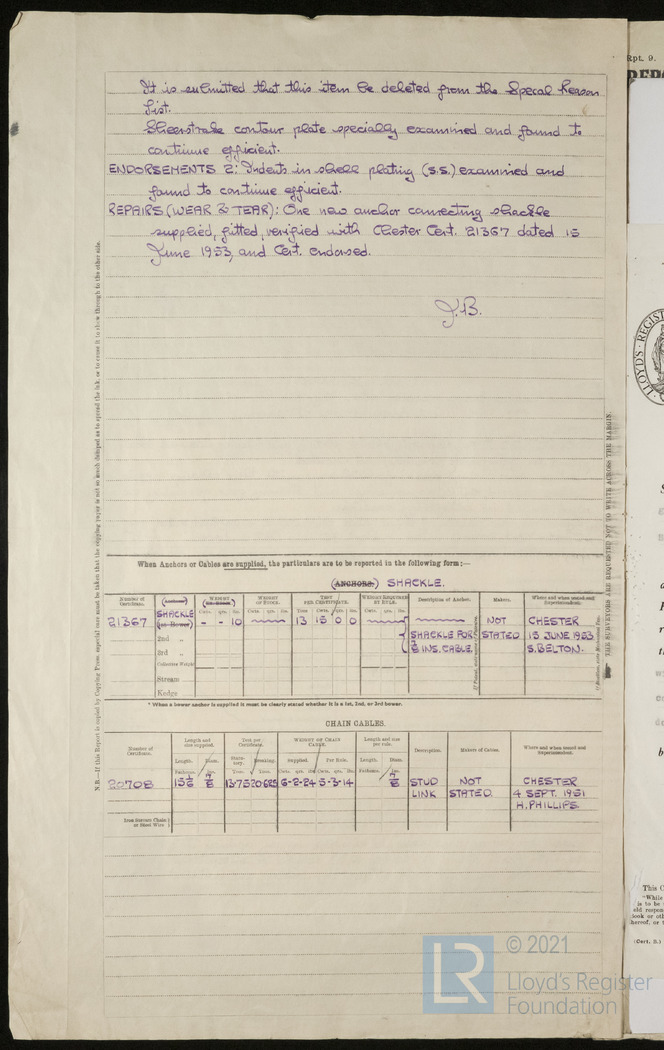 It is submitted that this item be deleted from the Special Reason
List.
Sheerstrake contour plate specially examined and found to
continue efficient.
ENDORSEMENTS 2: Indents in shell plating (S.S.) examined and
found to continue efficient.
REPAIRS (WEAR & TEAR): One new anchor connecting shackle
supplied, fitted, verified with Chester Cert. 21367 dated 15
June 1953, and Cert. endorsed.
J.B.
When Anchors or Cables are supplied, the particulars are to be reported in the following form:—
(ANCHORS.) SHACKLE.
Number of Certificate.
WEIGHT
WEIGHT OF STOCK.
TEST PER CERTIFICATE.
WEIGHT REQUIRED BY RULE.
Description of Anchor.
Makers.
Where and when tested and Superintendent.
21367 SHACKLE - - 10 13 15 0 0 NOT CHESTER
2nd „ SHACKLE FOR STATED 15 JUNE 1953
3rd „ INS. CABLE. S. BELTON.
Collective Weight
Stream
Kedge
* When a bower anchor is supplied it must be clearly stated whether it is a 1st, 2nd, or 3rd bower.
CHAIN CABLES.
Number of Certificate.
Length and size supplied.
Test per Certificate.
WEIGHT OF CHAIN CABLE.
Length and size per rule.
Description.
Makers of Cables.
Where and when tested and Superintendent.
Length. Diam. Statutory. Breaking. Supplied. Per Rule. Length. Diam.
20708 6-2-24 5-3-14 STUD NOT CHESTER
LINK STATED. 4 SEPT. 1951
H. PHILLIPS.
Iron Stream Chain or Steel Wire
N.B.—If this Report is copied by Copying Press, especial care must be taken that the copying paper is not so much damped as to spread the ink, or to cause it to show through to the other side.
THE SURVEYORS ARE REQUESTED NOT TO WRITE ACROSS THE MARGIN.
Rpt. 9.
LLOYD'S REGIST
This C
"While
is to be
(Cert. B.)
LR
© 2021
Lloyd's Register
Foundation